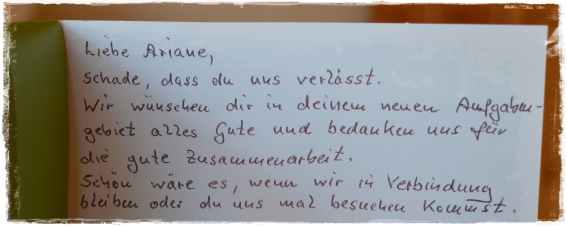 Liebe Ariane,
schade, dass du uns verlässt.
Wir wünschen dir in deinem neuen Aufgaben-
gebiet alles Gute und bedanken uns für
die gute Zusammenarbeit.
Schön wäre es, wenn wir in Verbindung
bleiben oder du uns mal besuchen kommst.